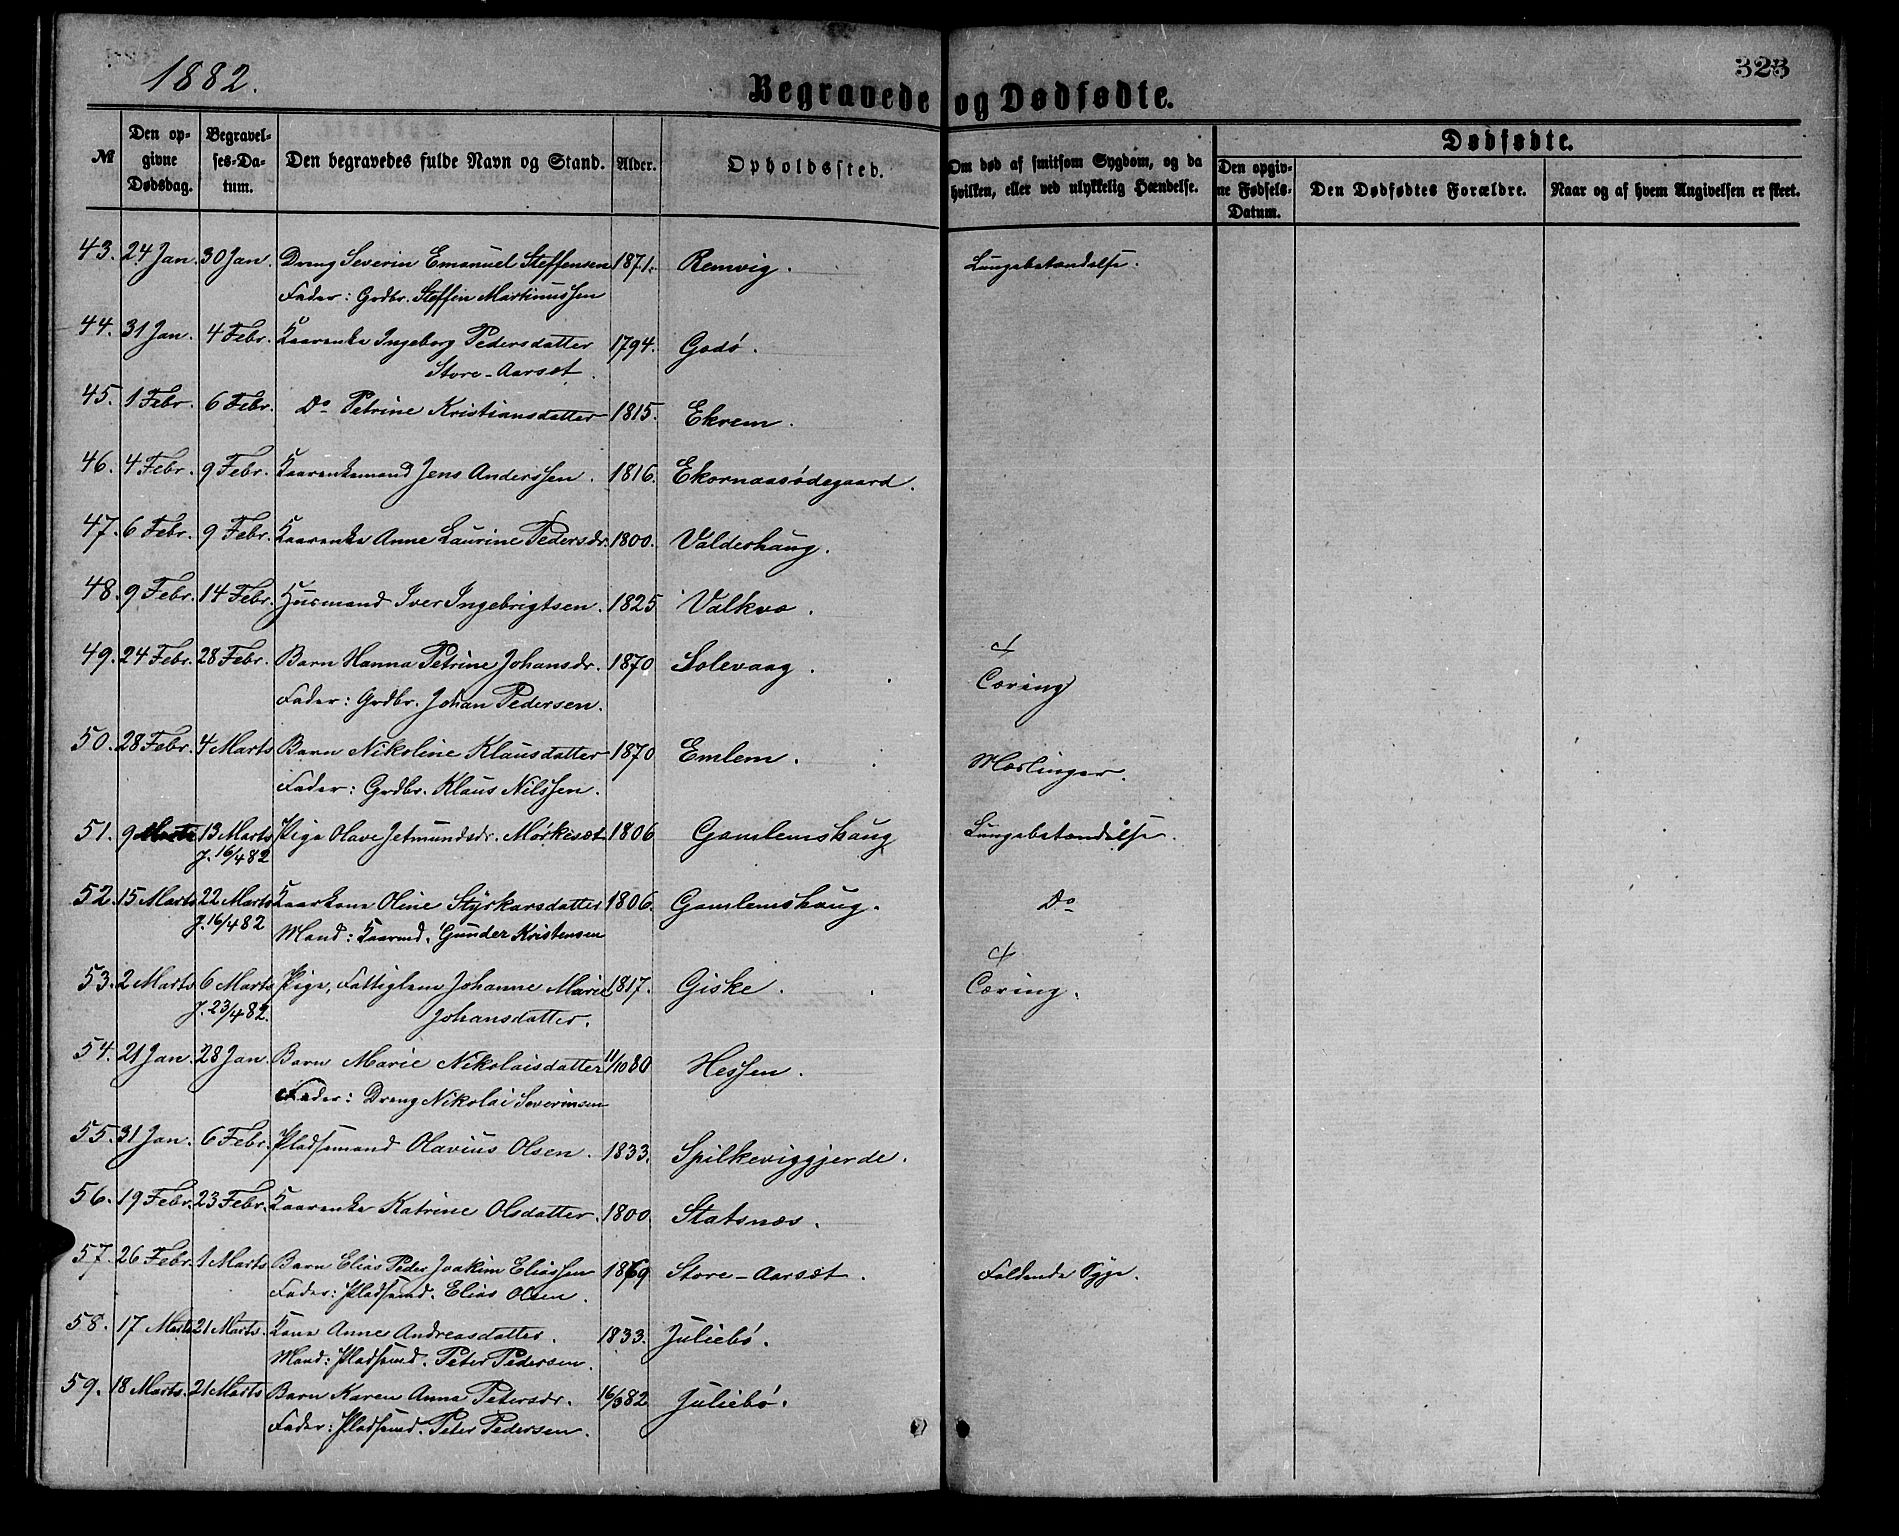 1882.
323
Begravede og Dødfødte.
№ | Den opgivne Dødsdag. | Begravelses-Datum. | Den begravedes fulde Navn og Stand. | Alder. | Opholdssted. | Om død af smitsom Sygdom, og da hvilken, eller ved ulykkelig Hændelse. | Dødfødte. | Den opgivne Fødsels-Datum. | Den Dødfødtes Forældre. | Naar og af hvem Angivelsen er skeet.
43. 24 Jan. 30 Jan. Dreng Severin Emanuel Steffensen 1871. Remvig. Lungebetændelse.
Fader: Grdbr. Steffen Martinussen
44. 31 Jan. 4 Febr. Kaarenke Ingeborg Pedersdatter 1794. Godø.
Store-Aarsæt
45. 1 Febr. 6 Febr. Do Petrine Kristiansdatter 1815. Ekrem.
46. 4 Febr. 9 Febr. Kaarenkemand Jens Anderssen. 1816. Ekornaasødegaard.
47. 6 Febr. 9 Febr. Kaarenke Anne Laurine Pedersdr. 1800. Valderhaug.
48. 9 Febr. 14 Febr. Husmand Iver Ingebrigtsen. 1825 Valkvæ.
49. 24 Febr. 28 Febr. Barn Hanna Petrine Johansdr. 1870 Solevaag. Tæring
Fader: Grdbr. Johan Pedersen.
50. 28 Febr. 4 Marts Barn Nikoline Klausdatter 1870 Emlem. Mæslinger.
Fader: Grdbr. Klaus Nilssen.
51. 9 Marts 13 Marts Pige Olave Jetmundsdr. Mørkesæt 1806 Gamlemshaug Lungebetændelse.
J. 16/4 82
52. 15 Marts 22 Marts Kaarkone Oline Styrkarsdatter 1806. Gamlemshaug. Do
J. 16/4 82 Mand: Kaarmd. Gunder Kristensen
53. 2 Marts 6 Marts Pige, Fattiglem Johanne Marie 1817. Giske. Tæring.
J. 23/4 82. Johansdatter.
54. 21 Jan. 28 Jan. Barn Marie Nikolaisdatter 11/10 80 Hessen.
Fader: Dreng Nikolai Severinsen
55. 31 Jan. 6 Febr. Pladsemand Olavius Olsen. 1833. Spilkeviggjerde.
56. 19 Febr. 23 Febr. Kaarenke Katrine Olsdatter. 1800. Statsnæs.
57. 26 Febr. 1 Marts Barn Elias Peder Joakim Eliassen 1869 Store-Aarsæt. Faldende Syge.
Fader: Pladsemd. Elias Olsen.
58. 17 Marts 21 Marts. Kone Anne Andreasdatter. 1833. Juliebø.
Mand: Pladsemd. Peter Pedersen.
59. 18 Marts. 21 Marts Barn Karen Anna Petersdr. 16/3 82 Juliebø.
Fader: Pladsemd. Peter Pedersen.